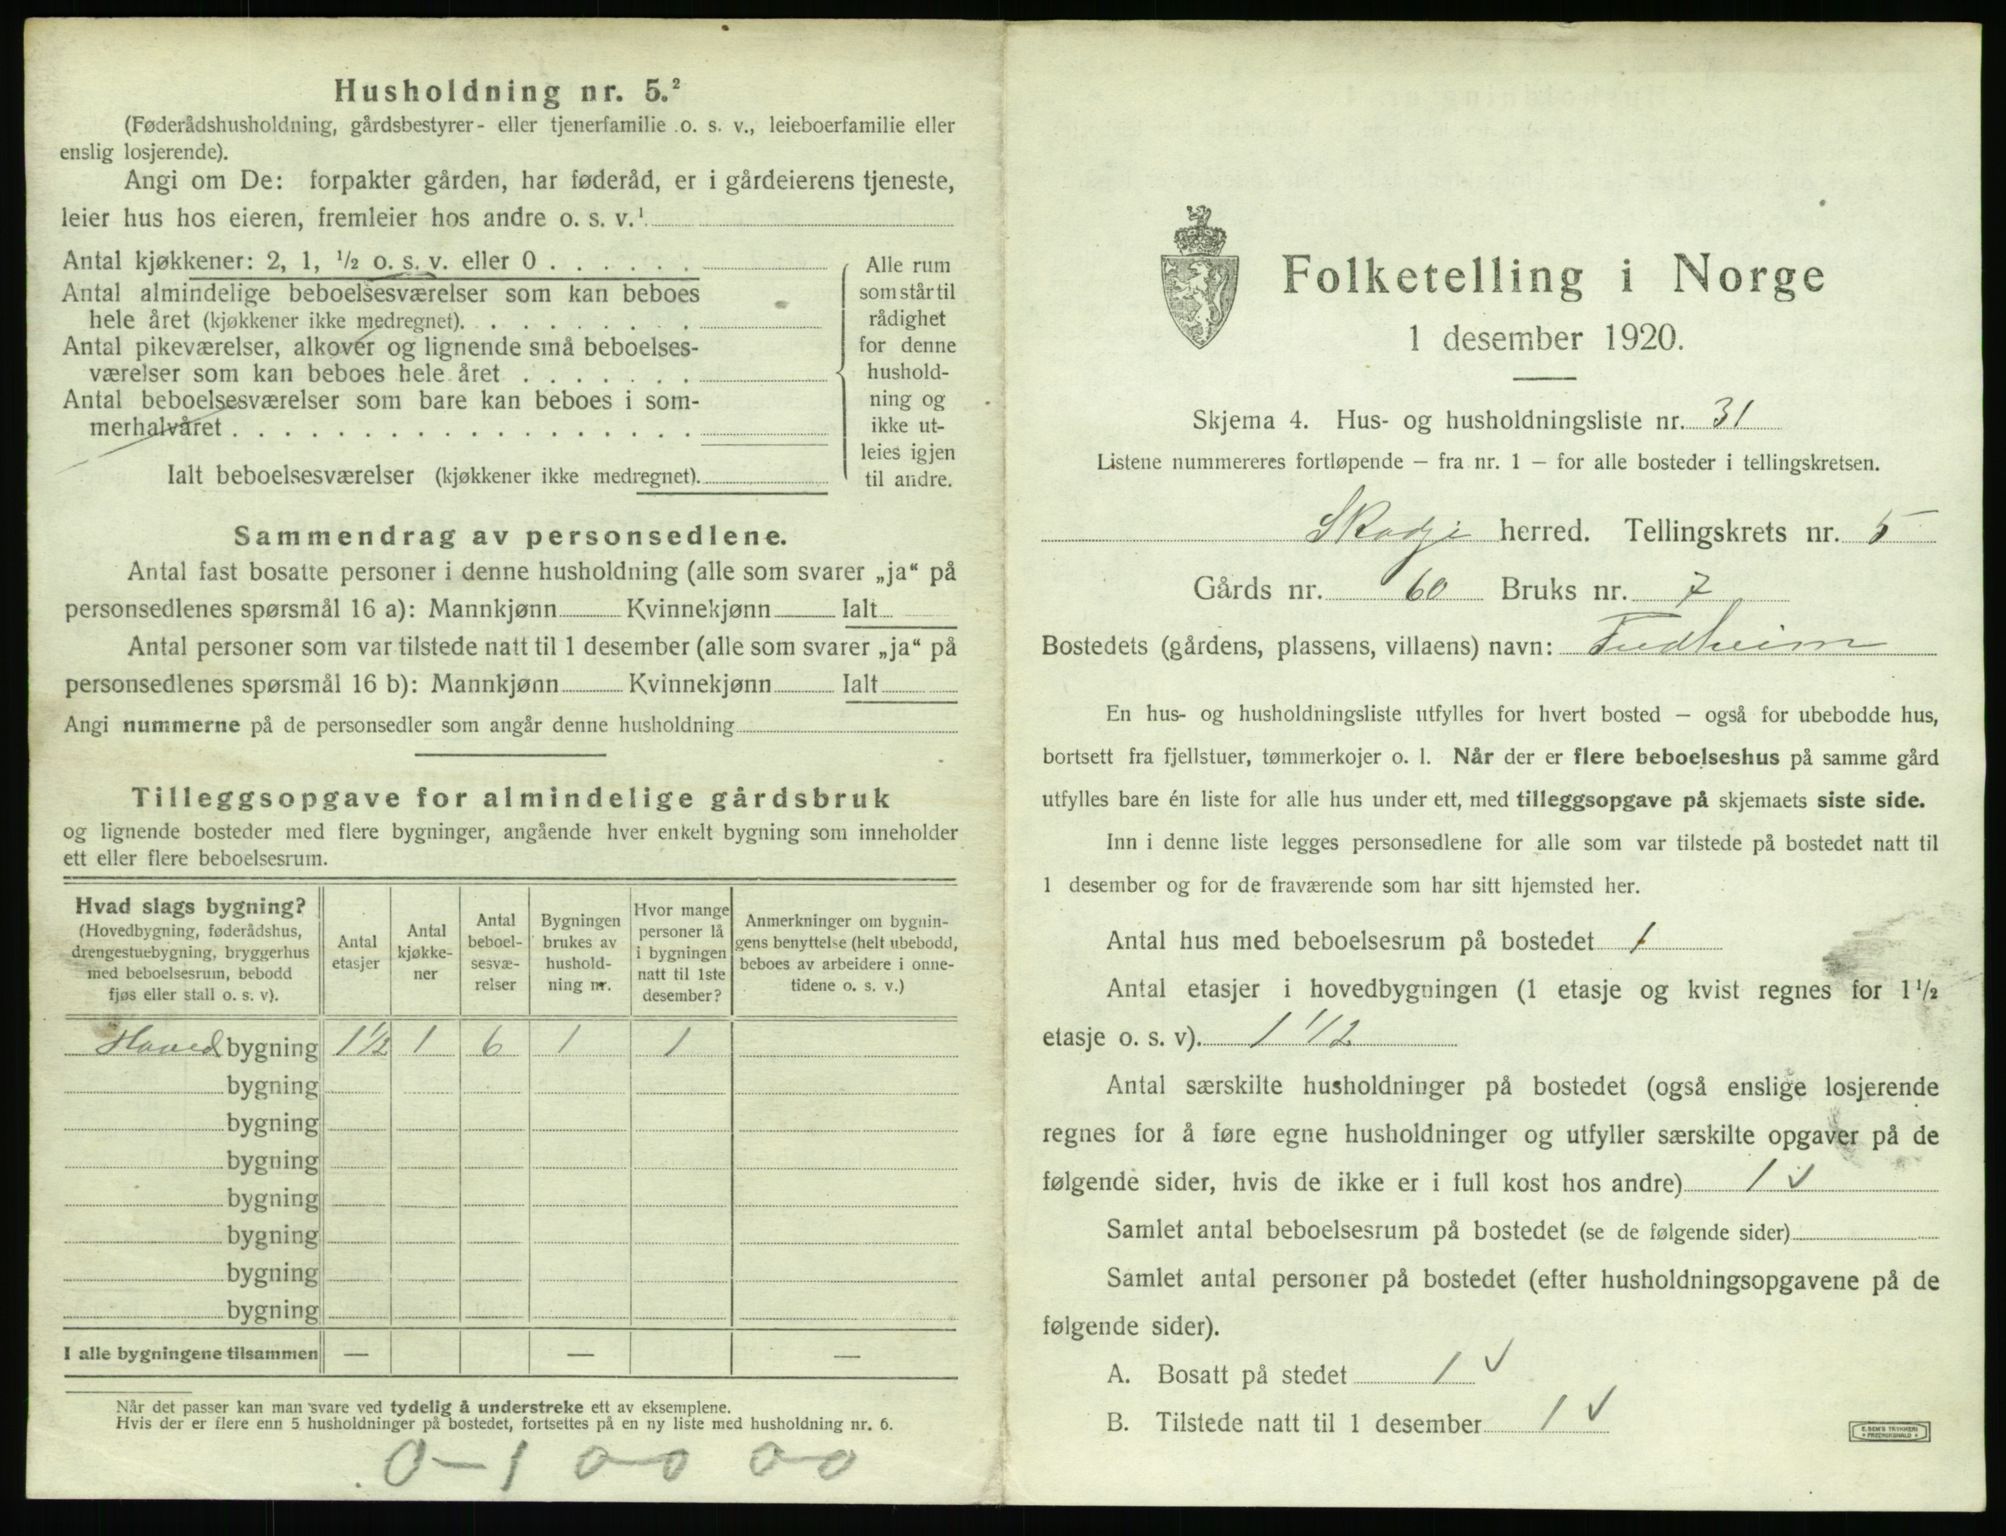 Husholdning nr. 5.²
(Føderådshusholdning, gårdsbestyrer- eller tjenerfamilie o. s. v., leieboerfamilie eller
enslig losjerende).
Angi om De: forpakter gården, har føderåd, er i gårdeierens tjeneste,
leier hus hos eieren, fremleier hos andre o. s. v.¹
Antal kjøkkener: 2, 1, ½ o. s. v. eller 0 . . . . . .
Antal almindelige beboelsesværelser som kan beboes
hele året (kjøkkener ikke medregnet). . . . . . . . .
Antal pikeværelser, alkover og lignende små beboelses-
værelser som kan beboes hele året . . . . . . .
Antal beboelsesværelser som bare kan beboes i som-
merhalvåret . . . . . . . . . . . . . . . . . .
Ialt beboelsesværelser (kjøkkener ikke medregnet).
Alle rum
som står til
rådighet
for denne
hushold-
ning og
ikke ut-
leies igjen
til andre.
Sammendrag av personsedlene.
Antal fast bosatte personer i denne husholdning (alle som svarer „ja“ på
personsedlenes spørsmål 16 a): Mannkjønn Kvinnekjønn Ialt
Antal personer som var tilstede natt til 1 desember (alle som svarer „ja“ på
personsedlenes spørsmål 16 b): Mannkjønn Kvinnekjønn Ialt
Angi nummerne på de personsedler som angår denne husholdning
Tilleggsopgave for almindelige gårdsbruk
og lignende bosteder med flere bygninger, angående hver enkelt bygning som inneholder
ett eller flere beboelsesrum.
Hvad slags bygning?
(Hovedbygning, føderådshus,
drengestuebygning, bryggerhus
med beboelsesrum, bebodd
fjøs eller stall o. s. v).
Antal
etasjer
Antal
kjøkke-
ner
Antal
beboel-
sesvæ-
relser
Bygningen
brukes av
hushold-
ning nr.
Hvor mange
personer lå
i bygningen
natt til 1ste
desember?
Anmerkninger om bygnin-
gens benyttelse (helt ubebodd,
beboes av arbeidere i onne-
tidene o. s. v.)
Hoved bygning 1½ 1 6 1 1
bygning
bygning
bygning
bygning
bygning
bygning
bygning
I alle bygningene tilsammen — — —
Når det passer kan man svare ved tydelig å understreke ett av eksemplene.
Hvis der er flere enn 5 husholdninger på bostedet, fortsettes på en ny liste med husholdning nr. 6.
0-1 0-0 0-0
Folketelling i Norge
1 desember 1920.
Skjema 4. Hus- og husholdningsliste nr. 31
Listene nummereres fortløpende – fra nr. 1 – for alle bosteder i tellingskretsen.
Skodje herred. Tellingskrets nr. 5
Gårds nr. 60 Bruks nr. 7
Bostedets (gårdens, plassens, villaens) navn:
En hus- og husholdningsliste utfylles for hvert bosted – også for ubebodde hus,
bortsett fra fjellstuer, tømmerkojer o. l. Når der er flere beboelseshus på samme gård
utfylles bare én liste for alle hus under ett, med tilleggsopgave på skjemaets siste side.
Inn i denne liste legges personsedlene for alle som var tilstede på bostedet natt til
1 desember og for de fraværende som har sitt hjemsted her.
Antal hus med beboelsesrum på bostedet 1
Antal etasjer i hovedbygningen (1 etasje og kvist regnes for 1½
etasje o. s. v). 1 1/2
Antal særskilte husholdninger på bostedet (også enslige losjerende
regnes for å føre egne husholdninger og utfyller særskilte opgaver på de
følgende sider, hvis de ikke er i full kost hos andre) 1 ✓
Samlet antal beboelsesrum på bostedet (se de følgende sider)
Samlet antal personer på bostedet (efter husholdningsopgavene på de
følgende sider).
A. Bosatt på stedet 1 ✓
B. Tilstede natt til 1 desember 1 ✓
E. SEM'S TRYKKERI
FREDRIKSHALD